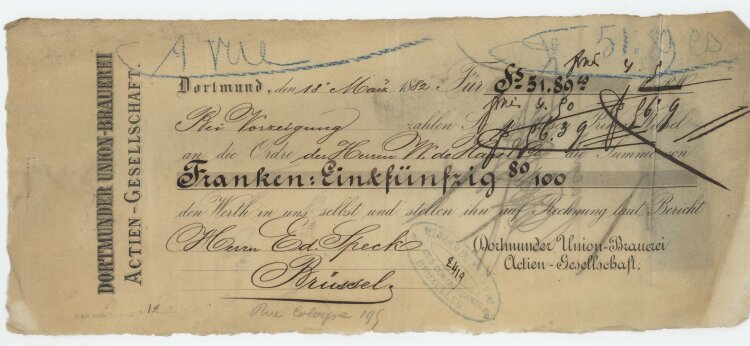 DORTMUNDER UNION-BRAUEREI
ACTIEN-GESELLSCHAFT.
A vue
51.89
Dortmund, den 18 März 1882 Für Fs 51.89
Bei Vorzeigung zahlen Prima Wechsel
an die Ordre der Herren W. de Haas & Co die Summe von
Franken: Einkfünfzig 89/100
den Werth in uns selbst und stellen ihn auf Rechnung laut Bericht
Herrn Ed. Speck
Brüssel.
2419
Dortmunder Union-Brauerei
Actien-Gesellschaft.
No
Rue Cologne 195